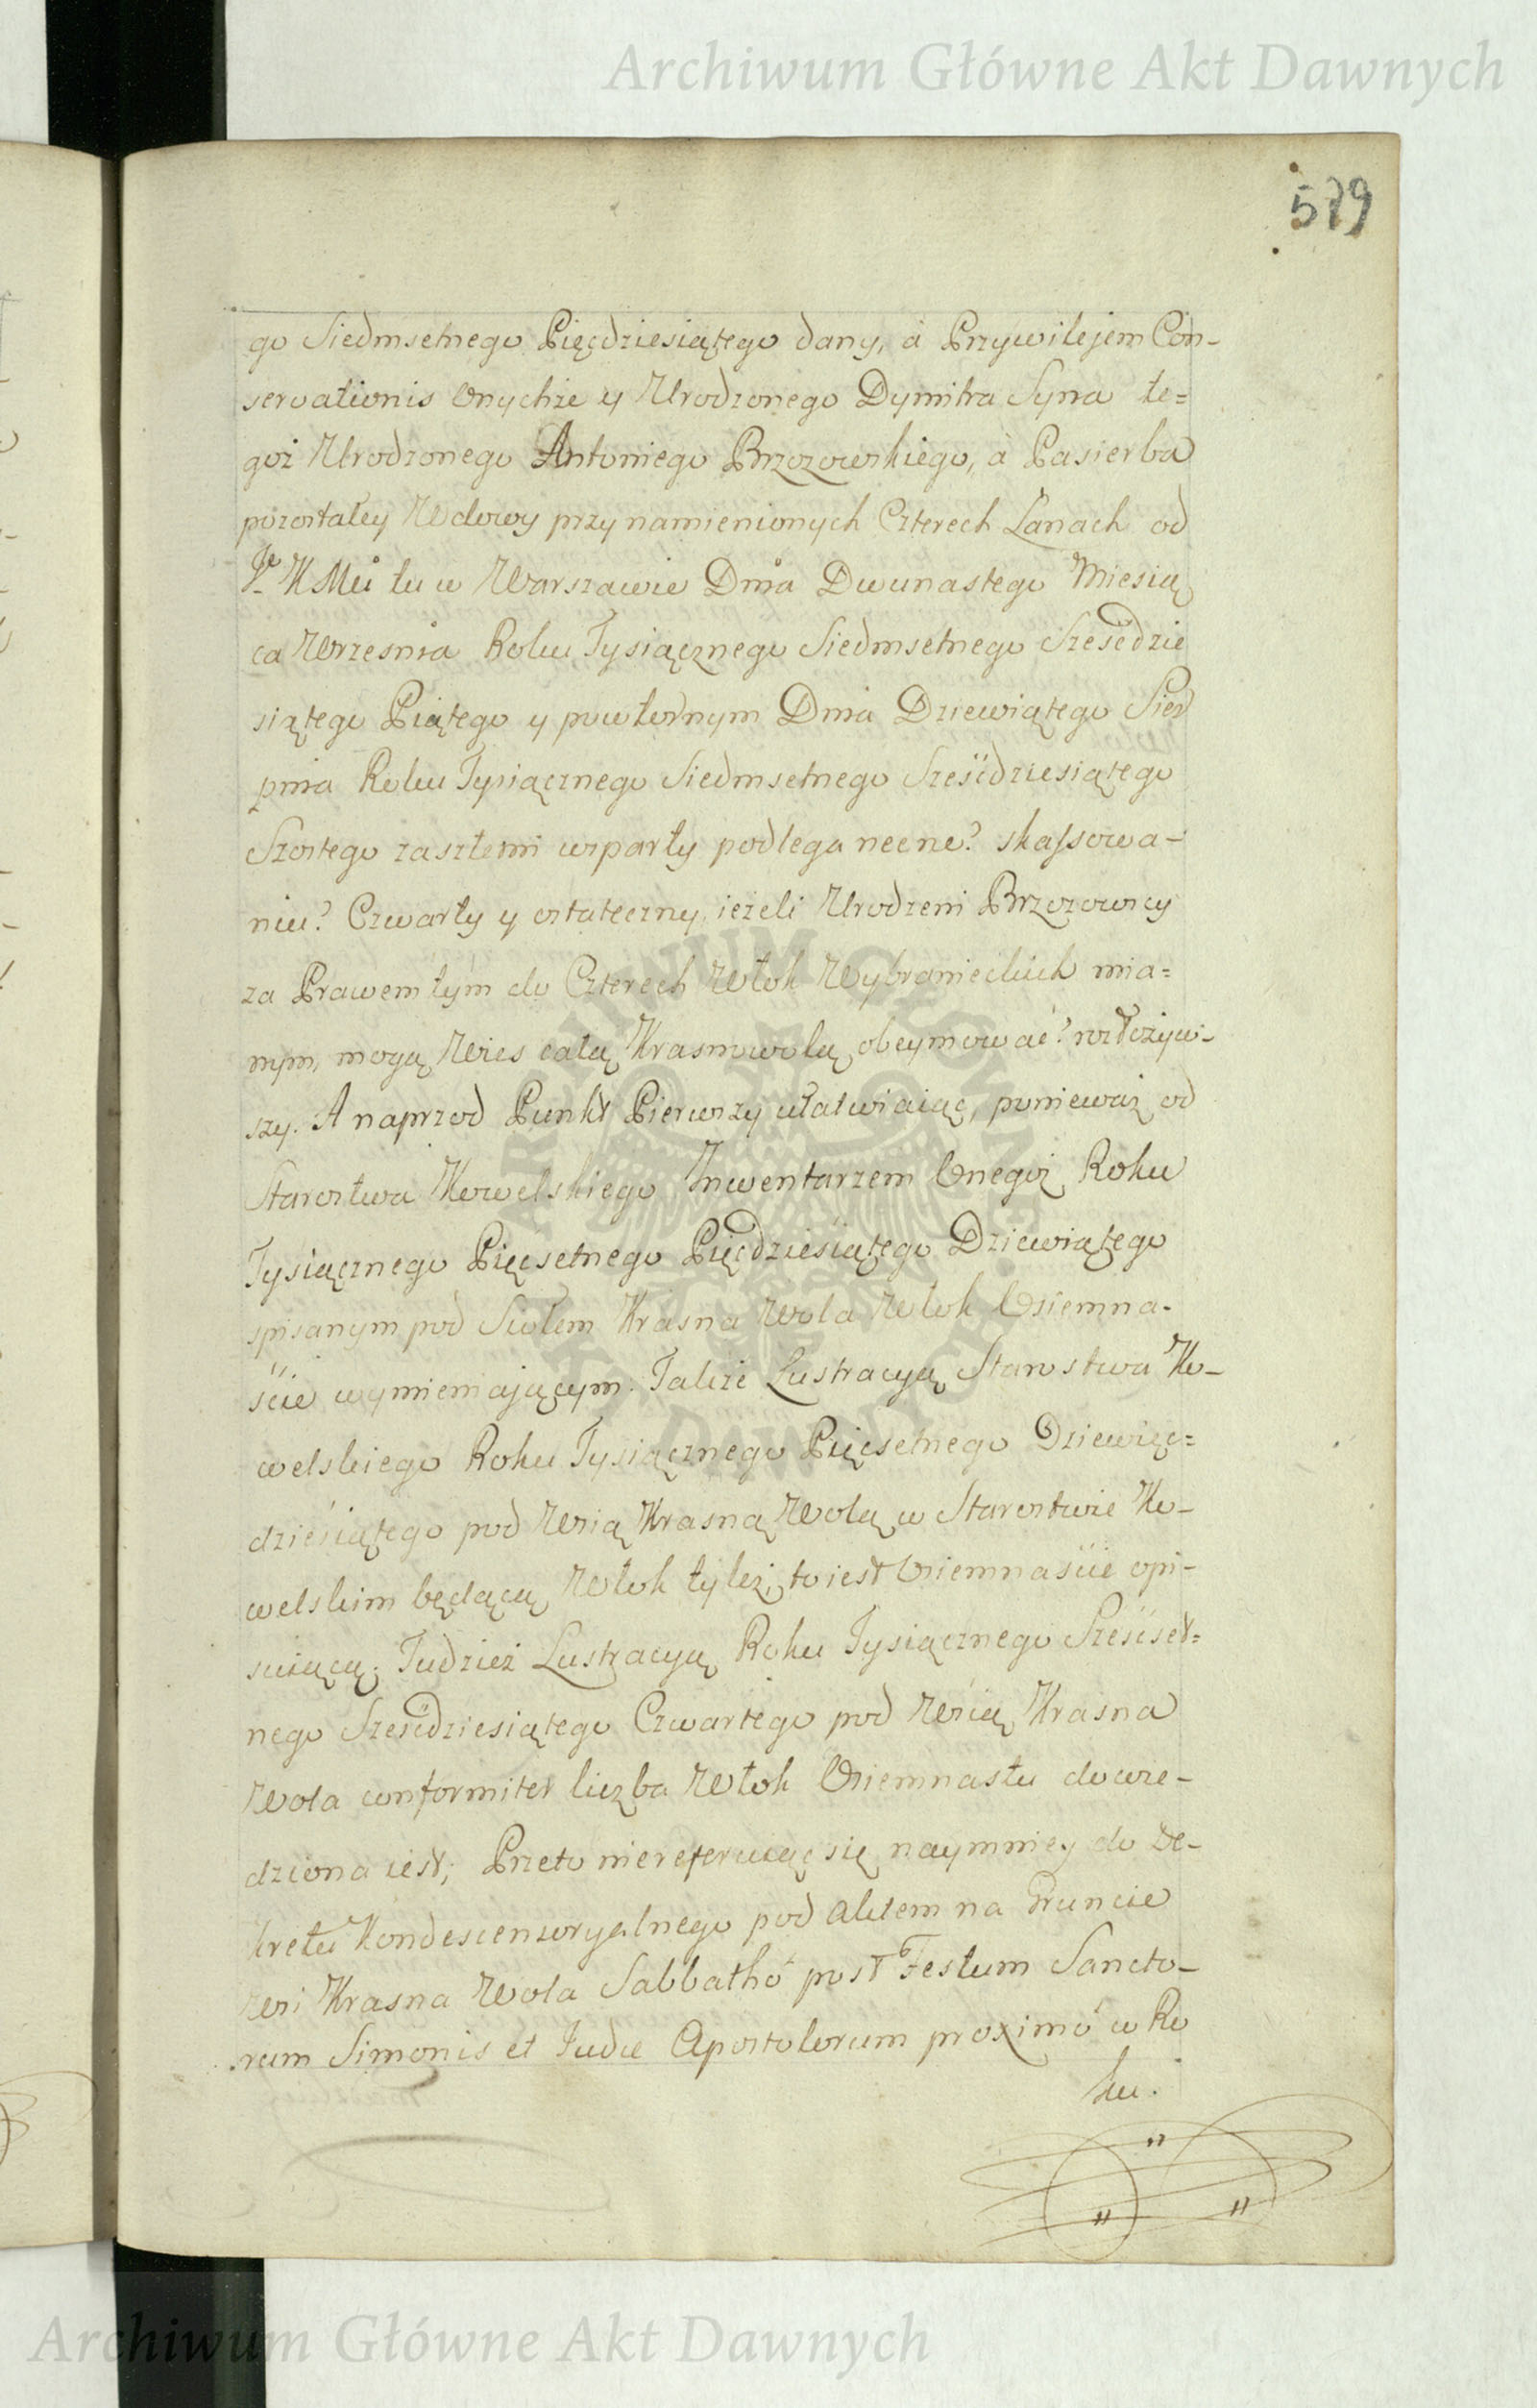 Archiwum Główne Akt Dawnych
579
go Siedmsetnego Pięcdziesiątego dany, à Przywilejem Con-
servationis Onychże y Urodzonego Dymitra Syna te=
goż Urodzonego Antoniego Brzozowskiego, à Pasierba
pozostałey Wdowy przy namienionych Czterech Łanach od
Je KMci tu w Warszawie Dnia Dwunastego Miesią
ca Wrzesnia Roku Tysiącznego Siedmsetnego Sześćdzie
siątego Piątego y powtornym Dnia Dziewiątego Sier
pnia Roku Tysiącznego Siedmsetnego Sześćdziesiątego
Szostego zaszłemi wsparty podlega necne? skassowa-
niu? Czwarty y ostateczny, ieżeli Urodzeni Brzozowscy
za Prawem tym do Czterech Włok Wybranieckich mia=
nym, mogą Wieś całą Krasnowolą obeymować? rozłożyw-
szy. A naprzod Punkt Pierwszy ułatwiaiąc, ponieważ od
Starostwa Kowelskiego Inwentarzem Onegoż Roku
Tysiącznego Pięcsetnego Pięcdziesiątego Dziewiątego
spisanym pod Siołem Krasna Wola Włok Osiemna-
ście wymieniającym. Także Lustracyą Starostwa Ko-
welskiego Roku Tysiącznego Pięcsetnego Dziewięc=
dziesiątego pod Wsią Krasną Wolą w Starostwie Ko-
welskim będącą Włok tyleż, to iest Osiemnaście opi-
suiącą; Tudzież Lustracyą Roku Tysiącznego Sześćset=
nego Sześćdziesiątego Czwartego pod Wsią Krasna
Wola conformiter liczba Włok Osiemnastu dowie-
dziona iest; Przeto niereferuiąc się naymniey do De-
kretu Kondescensoryalnego pod aktem na Gruncie
Wsi Krasna Wola Sabbathô post Festum Sancto-
rum Simonis et Judæ Apostolorum proximô w Ro
ku.
Archiwum Główne Akt Dawnych